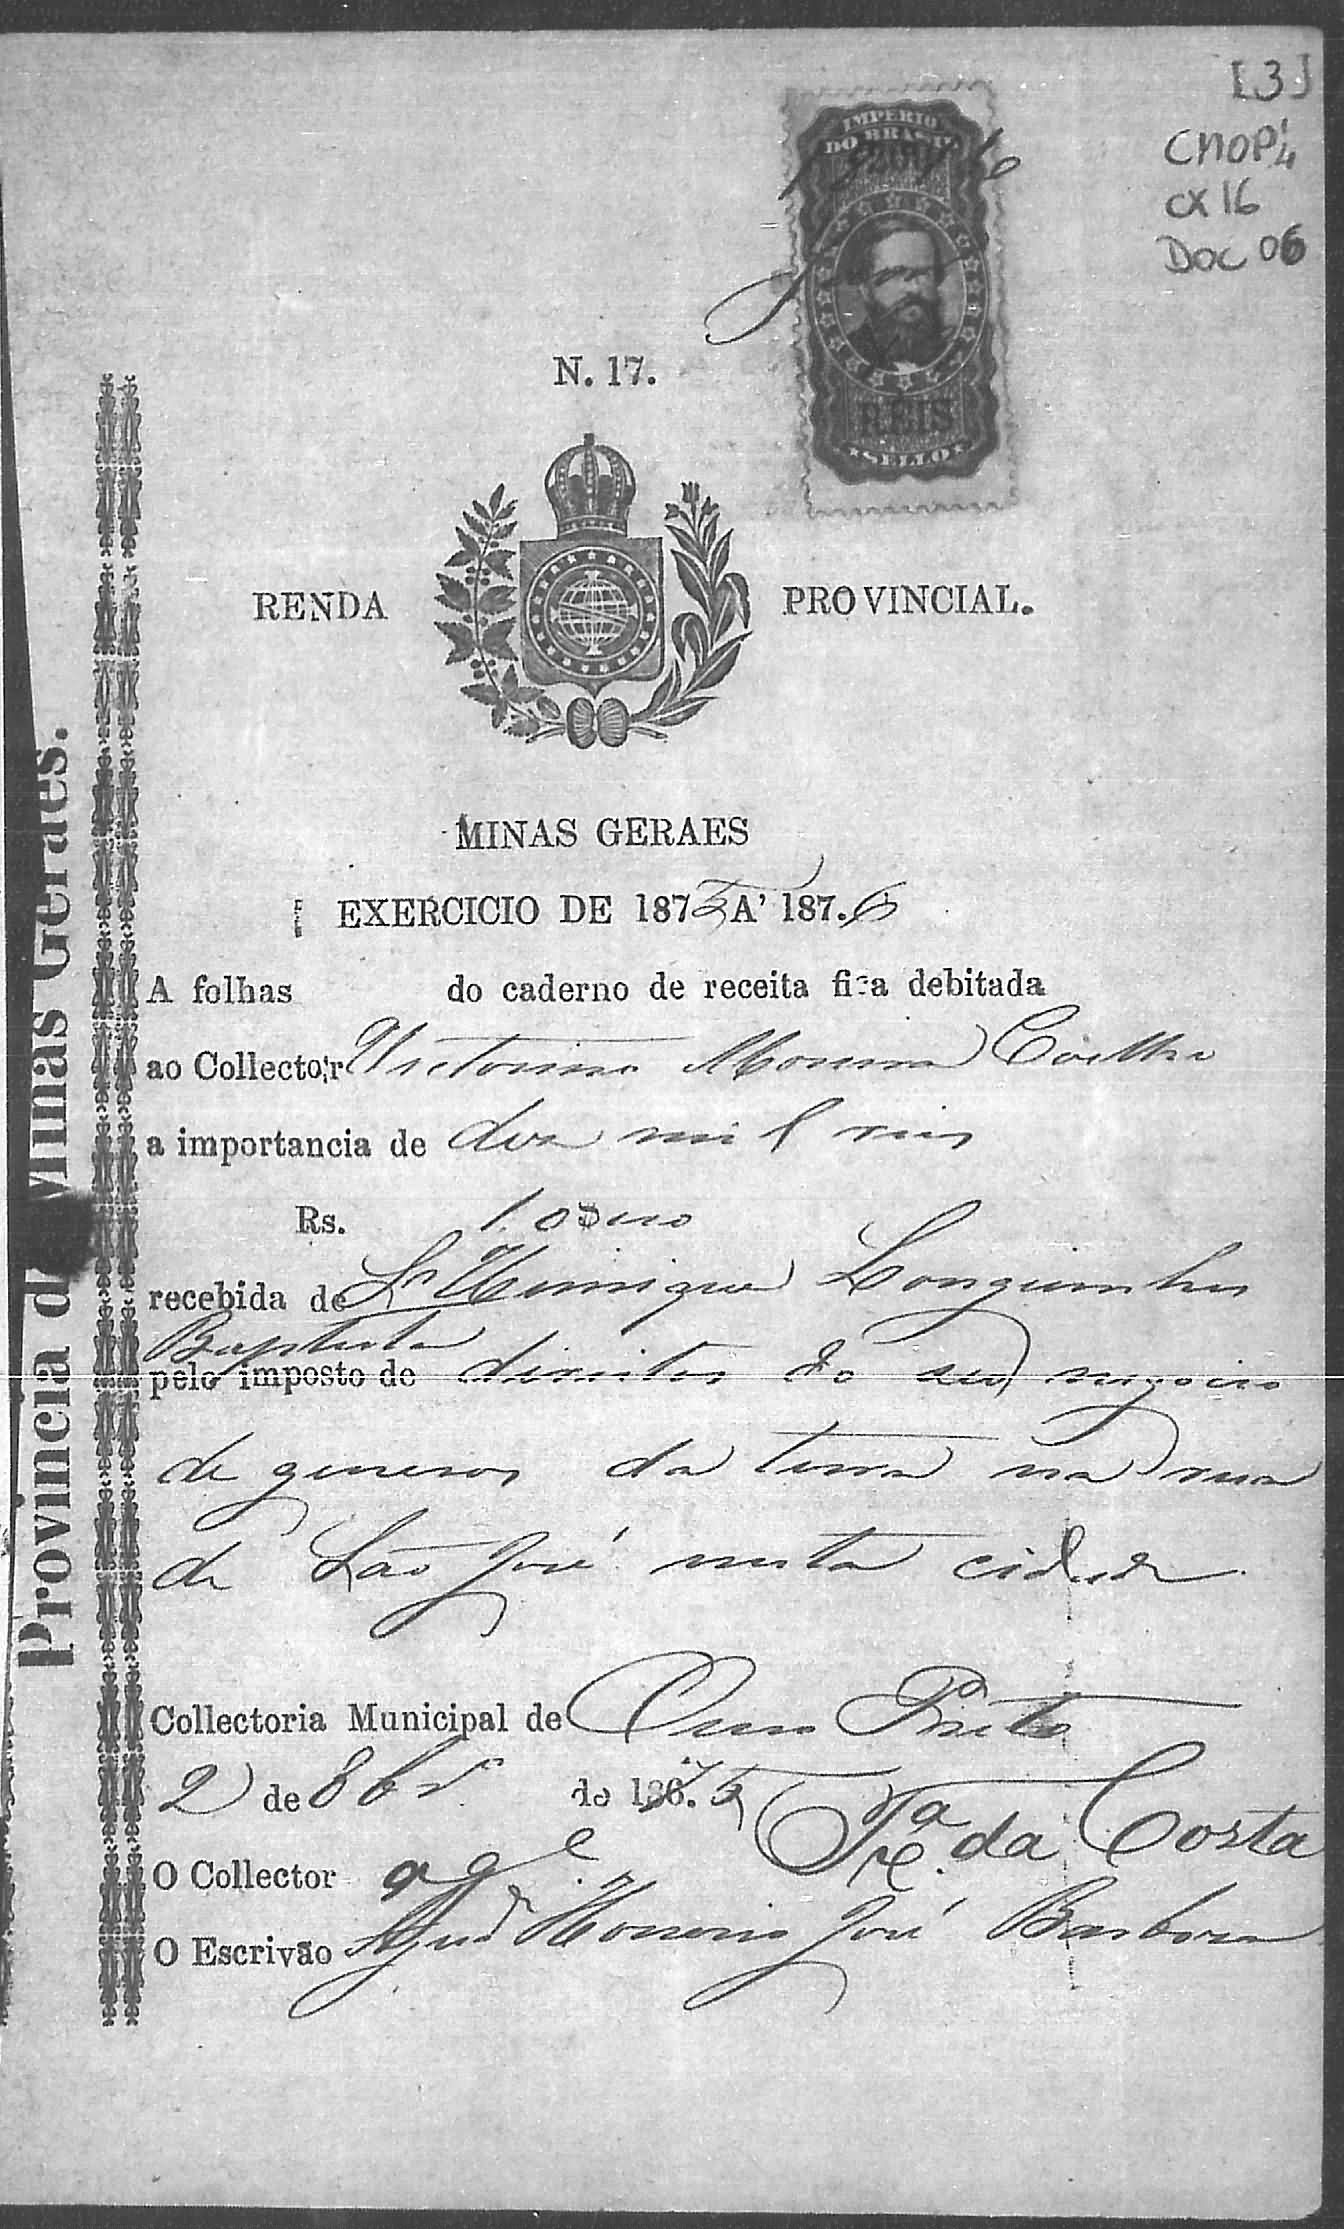 [3]
CMOP 4
CX 16
DOC 06
IMPERIO
DO BRASIL
REIS
SELLO
N. 17.
RENDA PROVINCIAL.
MINAS GERAES
EXERCICIO DE 1875 A' 187.6
A folhas do caderno de receita fica debitada
ao Collector Victorino Moreira Coelho
a importancia de dez mil reis
Rs. 10$000
recebida de Sr Henrique Longuinhos
Baptista
pelo imposto de direitos do seu negocio
de generos da terra na rua
de São José nesta cidade.
Collectoria Municipal de Ouro Preto
2 de 8br de 1875
O Collector age Fra. da Costa
O Escrivão Ajud Honorio José Barbosa
Provincia de Minas Geraes.